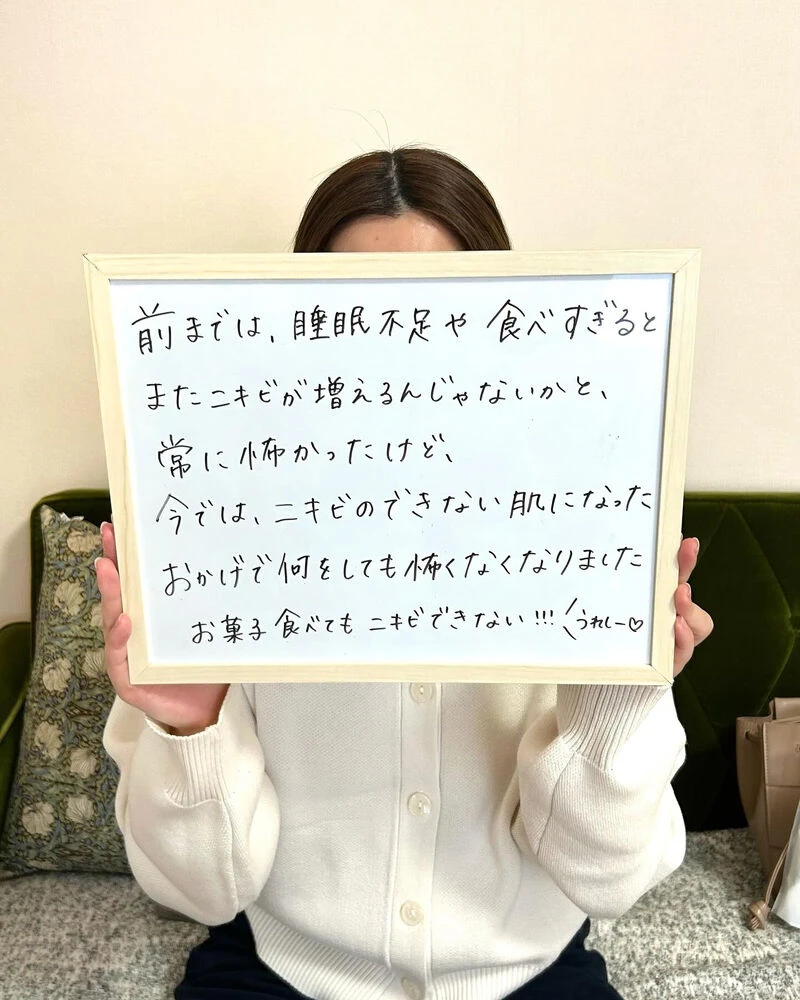 前までは、睡眠不足や食べすぎると
またニキビが増えるんじゃないかと、
常に怖かったけど、
今では、ニキビのできない肌になった
おかげで何をしても怖くなくなりました
お菓子食べてもニキビできない!!! うれしー♡